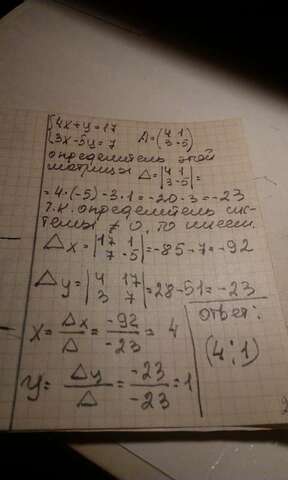 {4x+y=17 A=(4 1
{3x-5y=7 3 -5)
определитель этой
матрицы Δ=|4 1
3 -5|=
=4·(-5)-3·1=-20-3=-23
т.к. определитель сис-
темы ≠0, то имеем.
Δx=|17 1
7 -5|=-85-7=-92
Δy=|4 17
3 7|=28-51=-23
x=Δx/Δ=-92/-23=4
y=Δy/Δ=-23/-23=1
ответ:
(4;1)